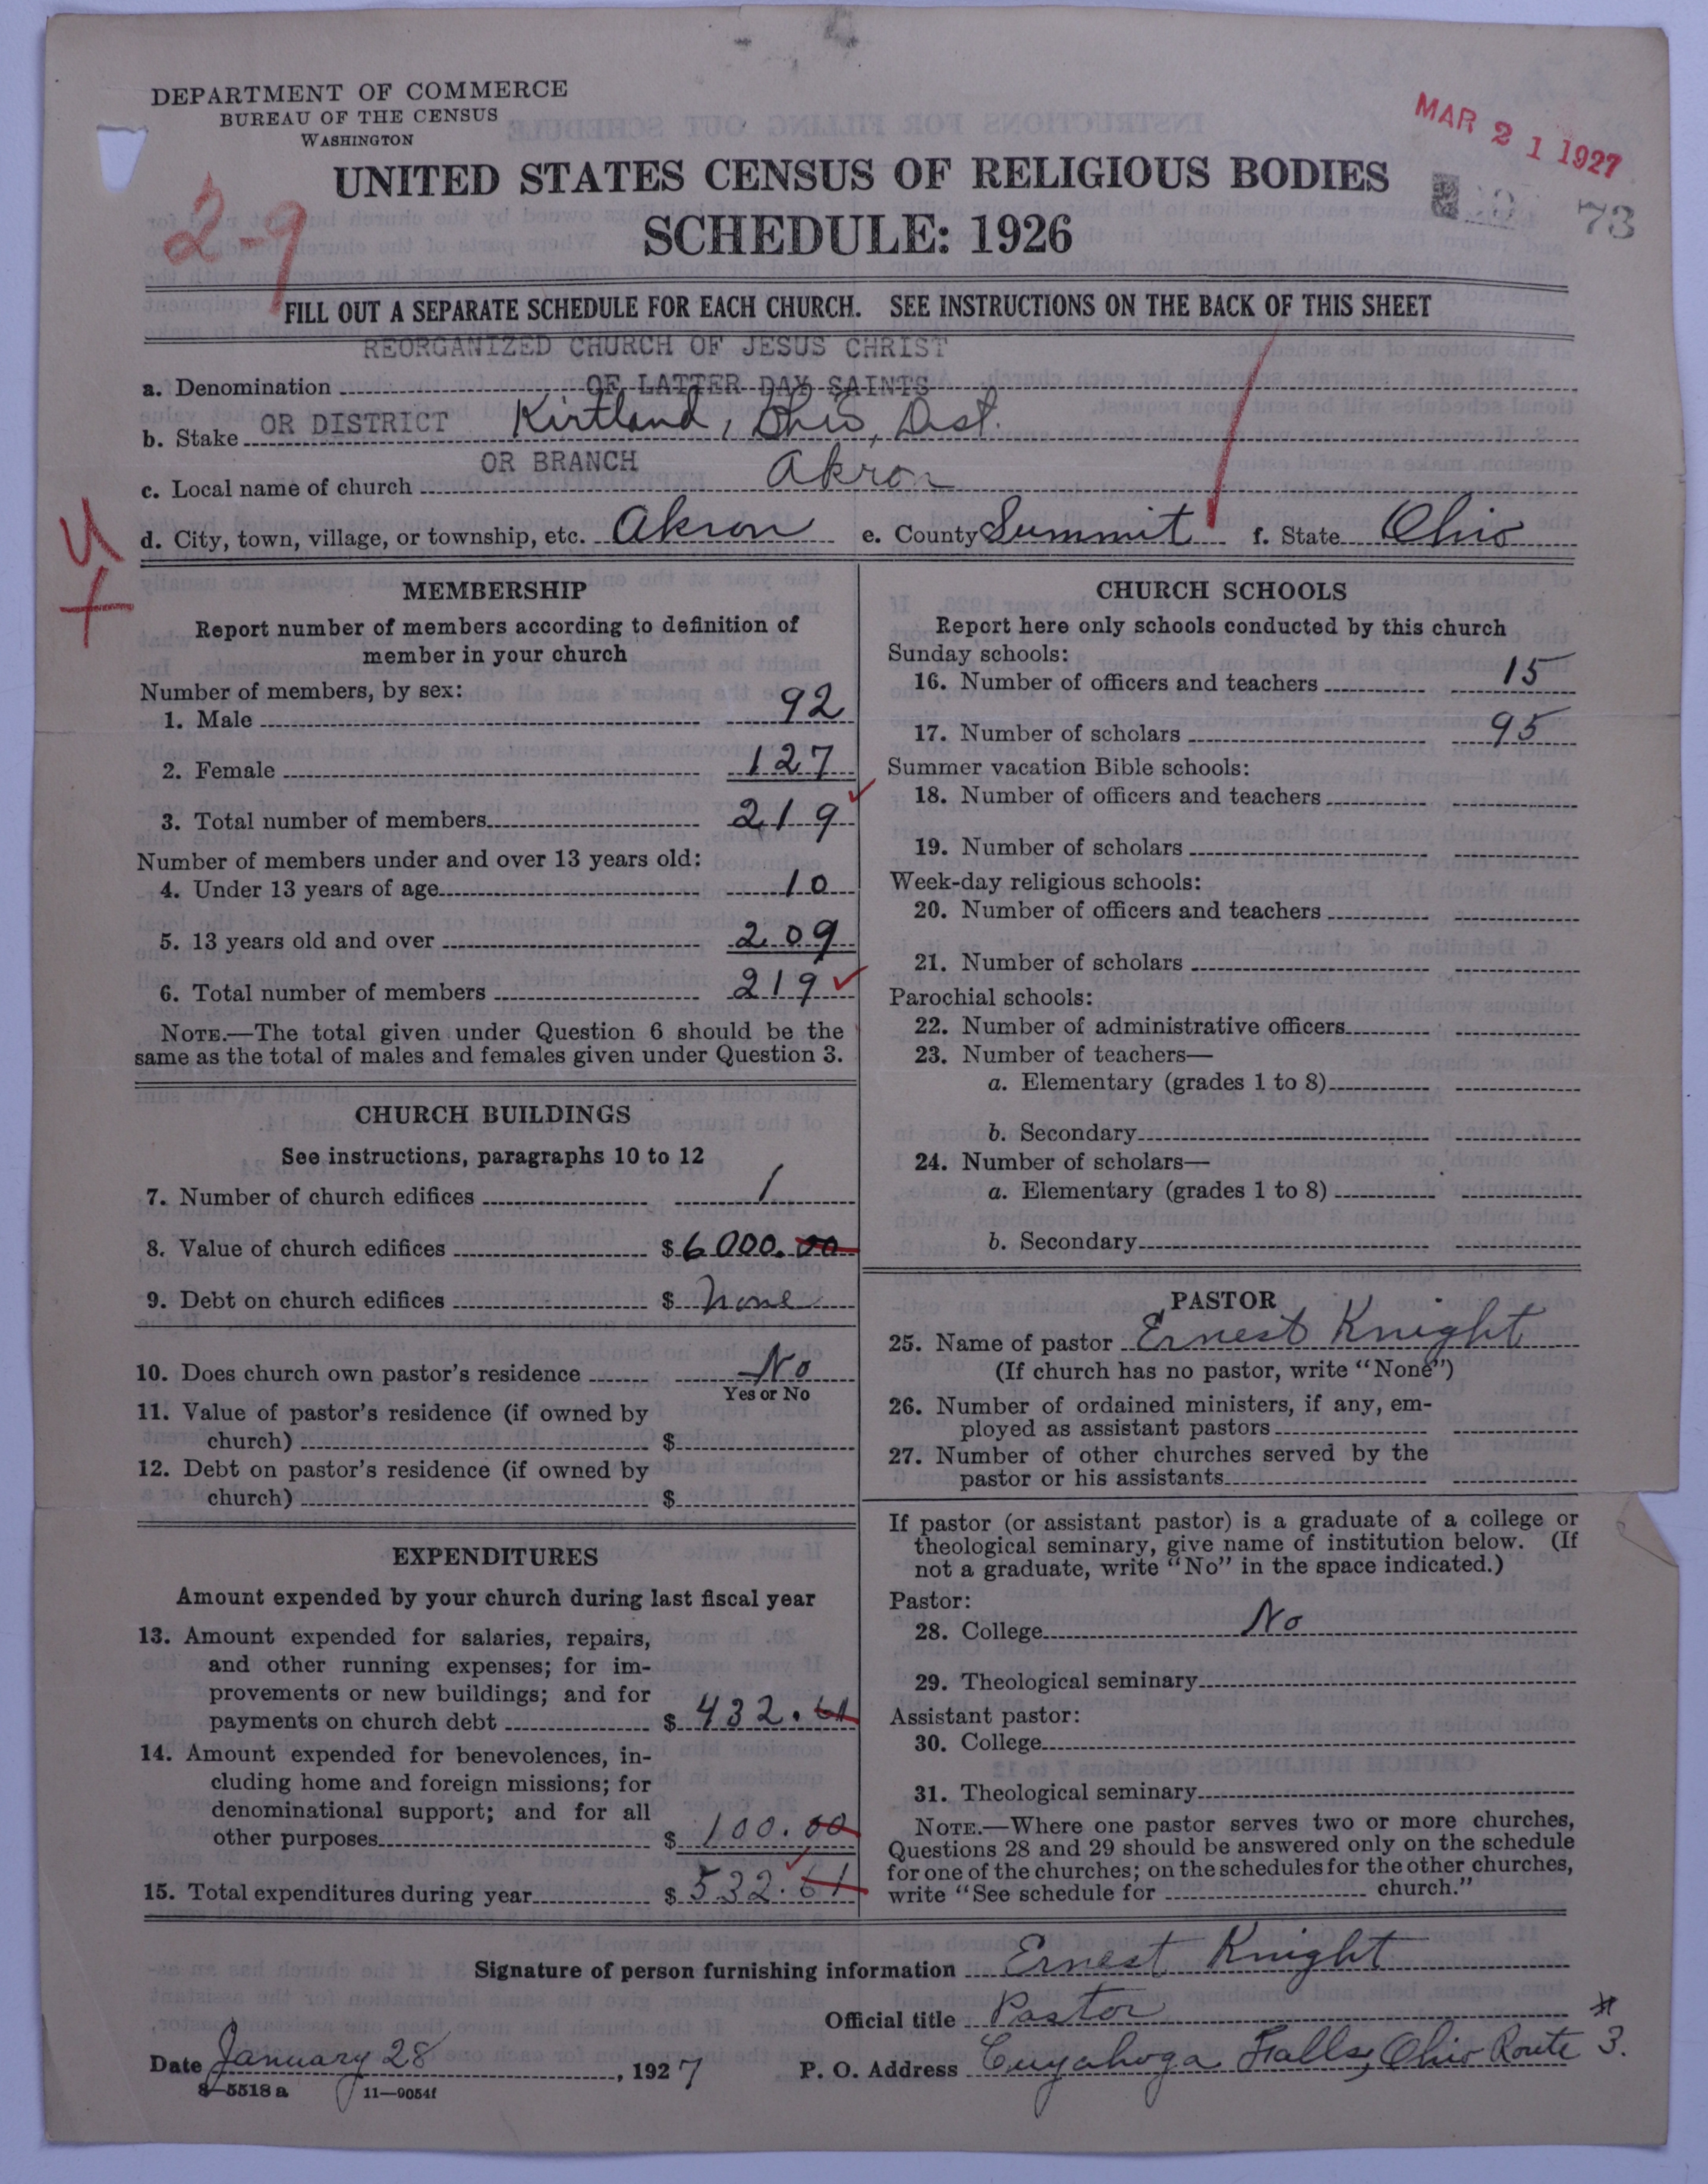 DEPARTMENT OF COMMERCE
BUREAU OF THE CENSUS
WASHINGTON
MAR 21 1927
UNITED STATES CENSUS OF RELIGIOUS BODIES
SCHEDULE: 1926
73
2-9
FILL OUT A SEPARATE SCHEDULE FOR EACH CHURCH. SEE INSTRUCTIONS ON THE BACK OF THIS SHEET
REORGANIZED CHURCH OF JESUS CHRIST
a. Denomination OF LATTER DAY SAINTS
b. Stake OR DISTRICT Kirtland, Ohio, Dist.
OR BRANCH
c. Local name of church Akron
d. City, town, village, or township, etc. Akron e. County Summit f. State Ohio
MEMBERSHIP
Report number of members according to definition of
member in your church
Number of members, by sex:
1. Male 92
2. Female 127
3. Total number of members 219
Number of members under and over 13 years old:
4. Under 13 years of age 10
5. 13 years old and over 209
6. Total number of members 219
NOTE.—The total given under Question 6 should be the
same as the total of males and females given under Question 3.
CHURCH BUILDINGS
See instructions, paragraphs 10 to 12
7. Number of church edifices 1
8. Value of church edifices $ 6000.00
9. Debt on church edifices $ none
10. Does church own pastor's residence No
Yes or No
11. Value of pastor's residence (if owned by
church) $
12. Debt on pastor's residence (if owned by
church) $
EXPENDITURES
Amount expended by your church during last fiscal year
13. Amount expended for salaries, repairs,
and other running expenses; for im-
provements or new buildings; and for
payments on church debt $ 432.61
14. Amount expended for benevolences, in-
cluding home and foreign missions; for
denominational support; and for all
other purposes $ 100.00
15. Total expenditures during year $ 532.61
CHURCH SCHOOLS
Report here only schools conducted by this church
Sunday schools:
16. Number of officers and teachers 15
17. Number of scholars 95
Summer vacation Bible schools:
18. Number of officers and teachers
19. Number of scholars
Week-day religious schools:
20. Number of officers and teachers
21. Number of scholars
Parochial schools:
22. Number of administrative officers
23. Number of teachers—
a. Elementary (grades 1 to 8)
b. Secondary
24. Number of scholars—
a. Elementary (grades 1 to 8)
b. Secondary
PASTOR
25. Name of pastor Ernest Knight
(If church has no pastor, write "None")
26. Number of ordained ministers, if any, em-
ployed as assistant pastors
27. Number of other churches served by the
pastor or his assistants
If pastor (or assistant pastor) is a graduate of a college or
theological seminary, give name of institution below. (If
not a graduate, write "No" in the space indicated.)
Pastor:
28. College No
29. Theological seminary
Assistant pastor:
30. College
31. Theological seminary
NOTE.—Where one pastor serves two or more churches,
Questions 28 and 29 should be answered only on the schedule
for one of the churches; on the schedules for the other churches,
write "See schedule for church."
Signature of person furnishing information Ernest Knight
Official title Pastor
Date January 28, 1927 P. O. Address Cuyahoga Falls, Ohio Route #3.
8-5518 a 11-9054f